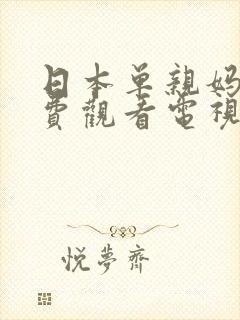 日本单親妈
費觀看電視
悦夢齊